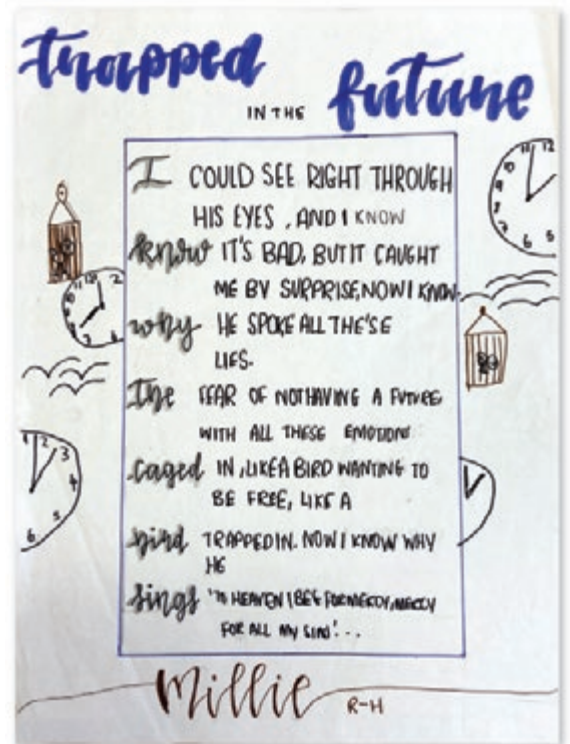 trapped
IN THE future
I COULD SEE RIGHT THROUGH
HIS EYES, AND I KNOW
know IT'S BAD, BUT IT CAUGHT
ME BY SURPRISE, NOW I KNOW
why HE SPOKE ALL THE'SE
LIES.
The FEAR OF NOT HAVING A FUTURE
WITH ALL THESE EMOTIONS
caged IN, LIKE A BIRD WANTING TO
BE FREE, LIKE A
bird TRAPPED IN. NOW I KNOW WHY
HE
sings 'TO HEAVEN I BEG FOR MERCY, MERCY
FOR ALL MY SINS'...
Millie R-H
11 12
1
2
3
4
5
6